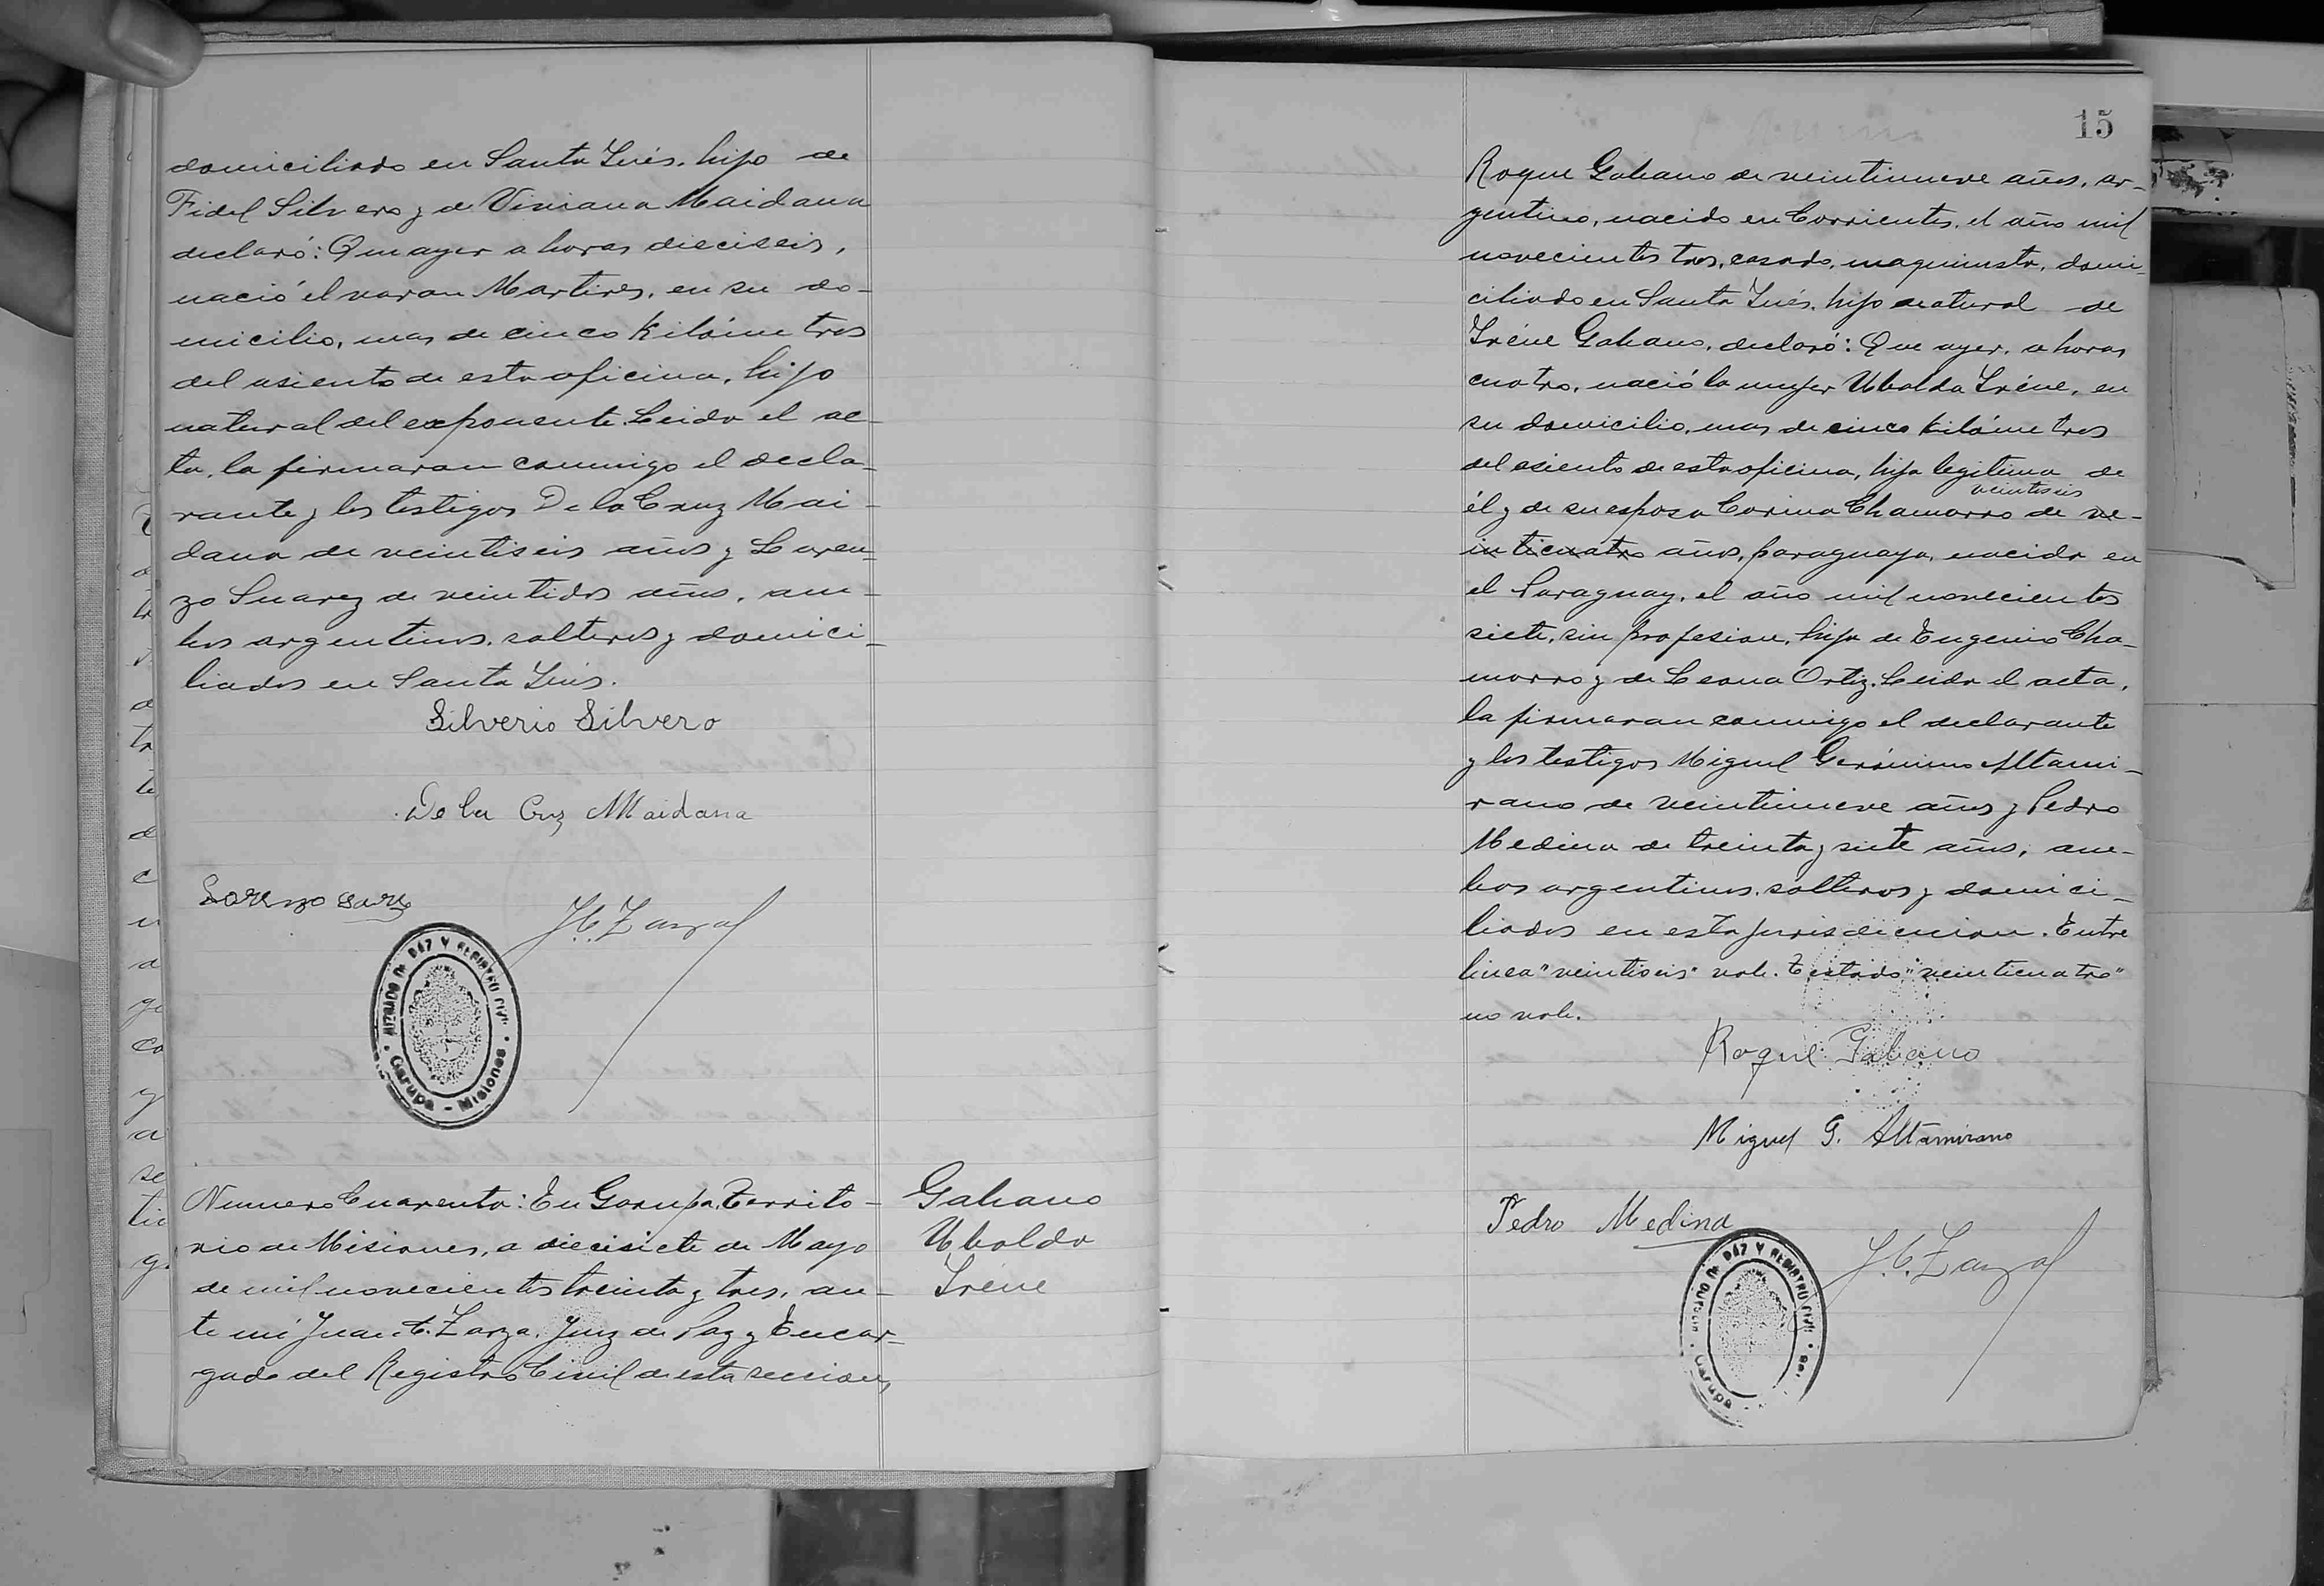 domiciliado en Santa Inés, hijo de
Fidel Silvero y de Viviana Maidana
declaró: Que ayer a horas dieciseis,
nació el varon Martires, en su do-
micilio, mas de cinco kilómetros
del asiento de esta oficina, hijo
natural del exponente. Leida el ac-
ta, la firmaran conmigo el decla-
rante y los testigos De la Cruz Mai-
dana de veintiseis años y Loren-
zo Suarez de veintidos años, am-
bos argentinos, solteros y domici-
liados en Santa Inés.
Silverio Silvero
De la Cruz Maidana
Lorenzo
J. C. Zarza
JUZGADO DE PAZ Y REGISTRO CIVIL
Garupa - Misiones
Numero Cuarenta: En Garupa, Territo-
rio de Misiones, a diecisiete de Mayo
de mil novecientos treinta y tres, an-
te mi Juan C. Zarza, Juez de Paz y Encar-
gado del Registro Civil de esta seccion,
Galeano
Ubalda
Iréne
15
Roque Galeano de veintinueve años, ar-
gentino, nacido en Corrientes, el año mil
novecientos tres, casado, maquinista, domi-
ciliado en Santa Inés, hijo natural de
Iréne Galeano, declaró: Que ayer, a horas
cuatro, nació la mujer Ubalda Iréne, en
su domicilio, mas de cinco kilómetros
del asiento de esta oficina, hija legitima de
veintiseis
él y de su esposa Corina Chamorro de ve-
inticuatro años, paraguaya, nacida en
el Paraguay, el año mil novecientos
siete, sin profesion, hija de Eugenio Cha-
morro y de Leona Ortiz. Leida el acta,
la firmaran conmigo el declarante
y los testigos Miguel Gerónimo Altami-
rano de veintinueve años y Pedro
Medina de treinta y siete años, am-
bos argentinos, solteros y domici-
liados en esta jurisdiccion. Entre
linea "veintiseis" vale. Testado "veinticuatro"
no vale.
Roque Galeano
Miguel G. Altamirano
Pedro Medina
J. C. Zarza
JUZGADO DE PAZ Y REGISTRO CIVIL
Garupa